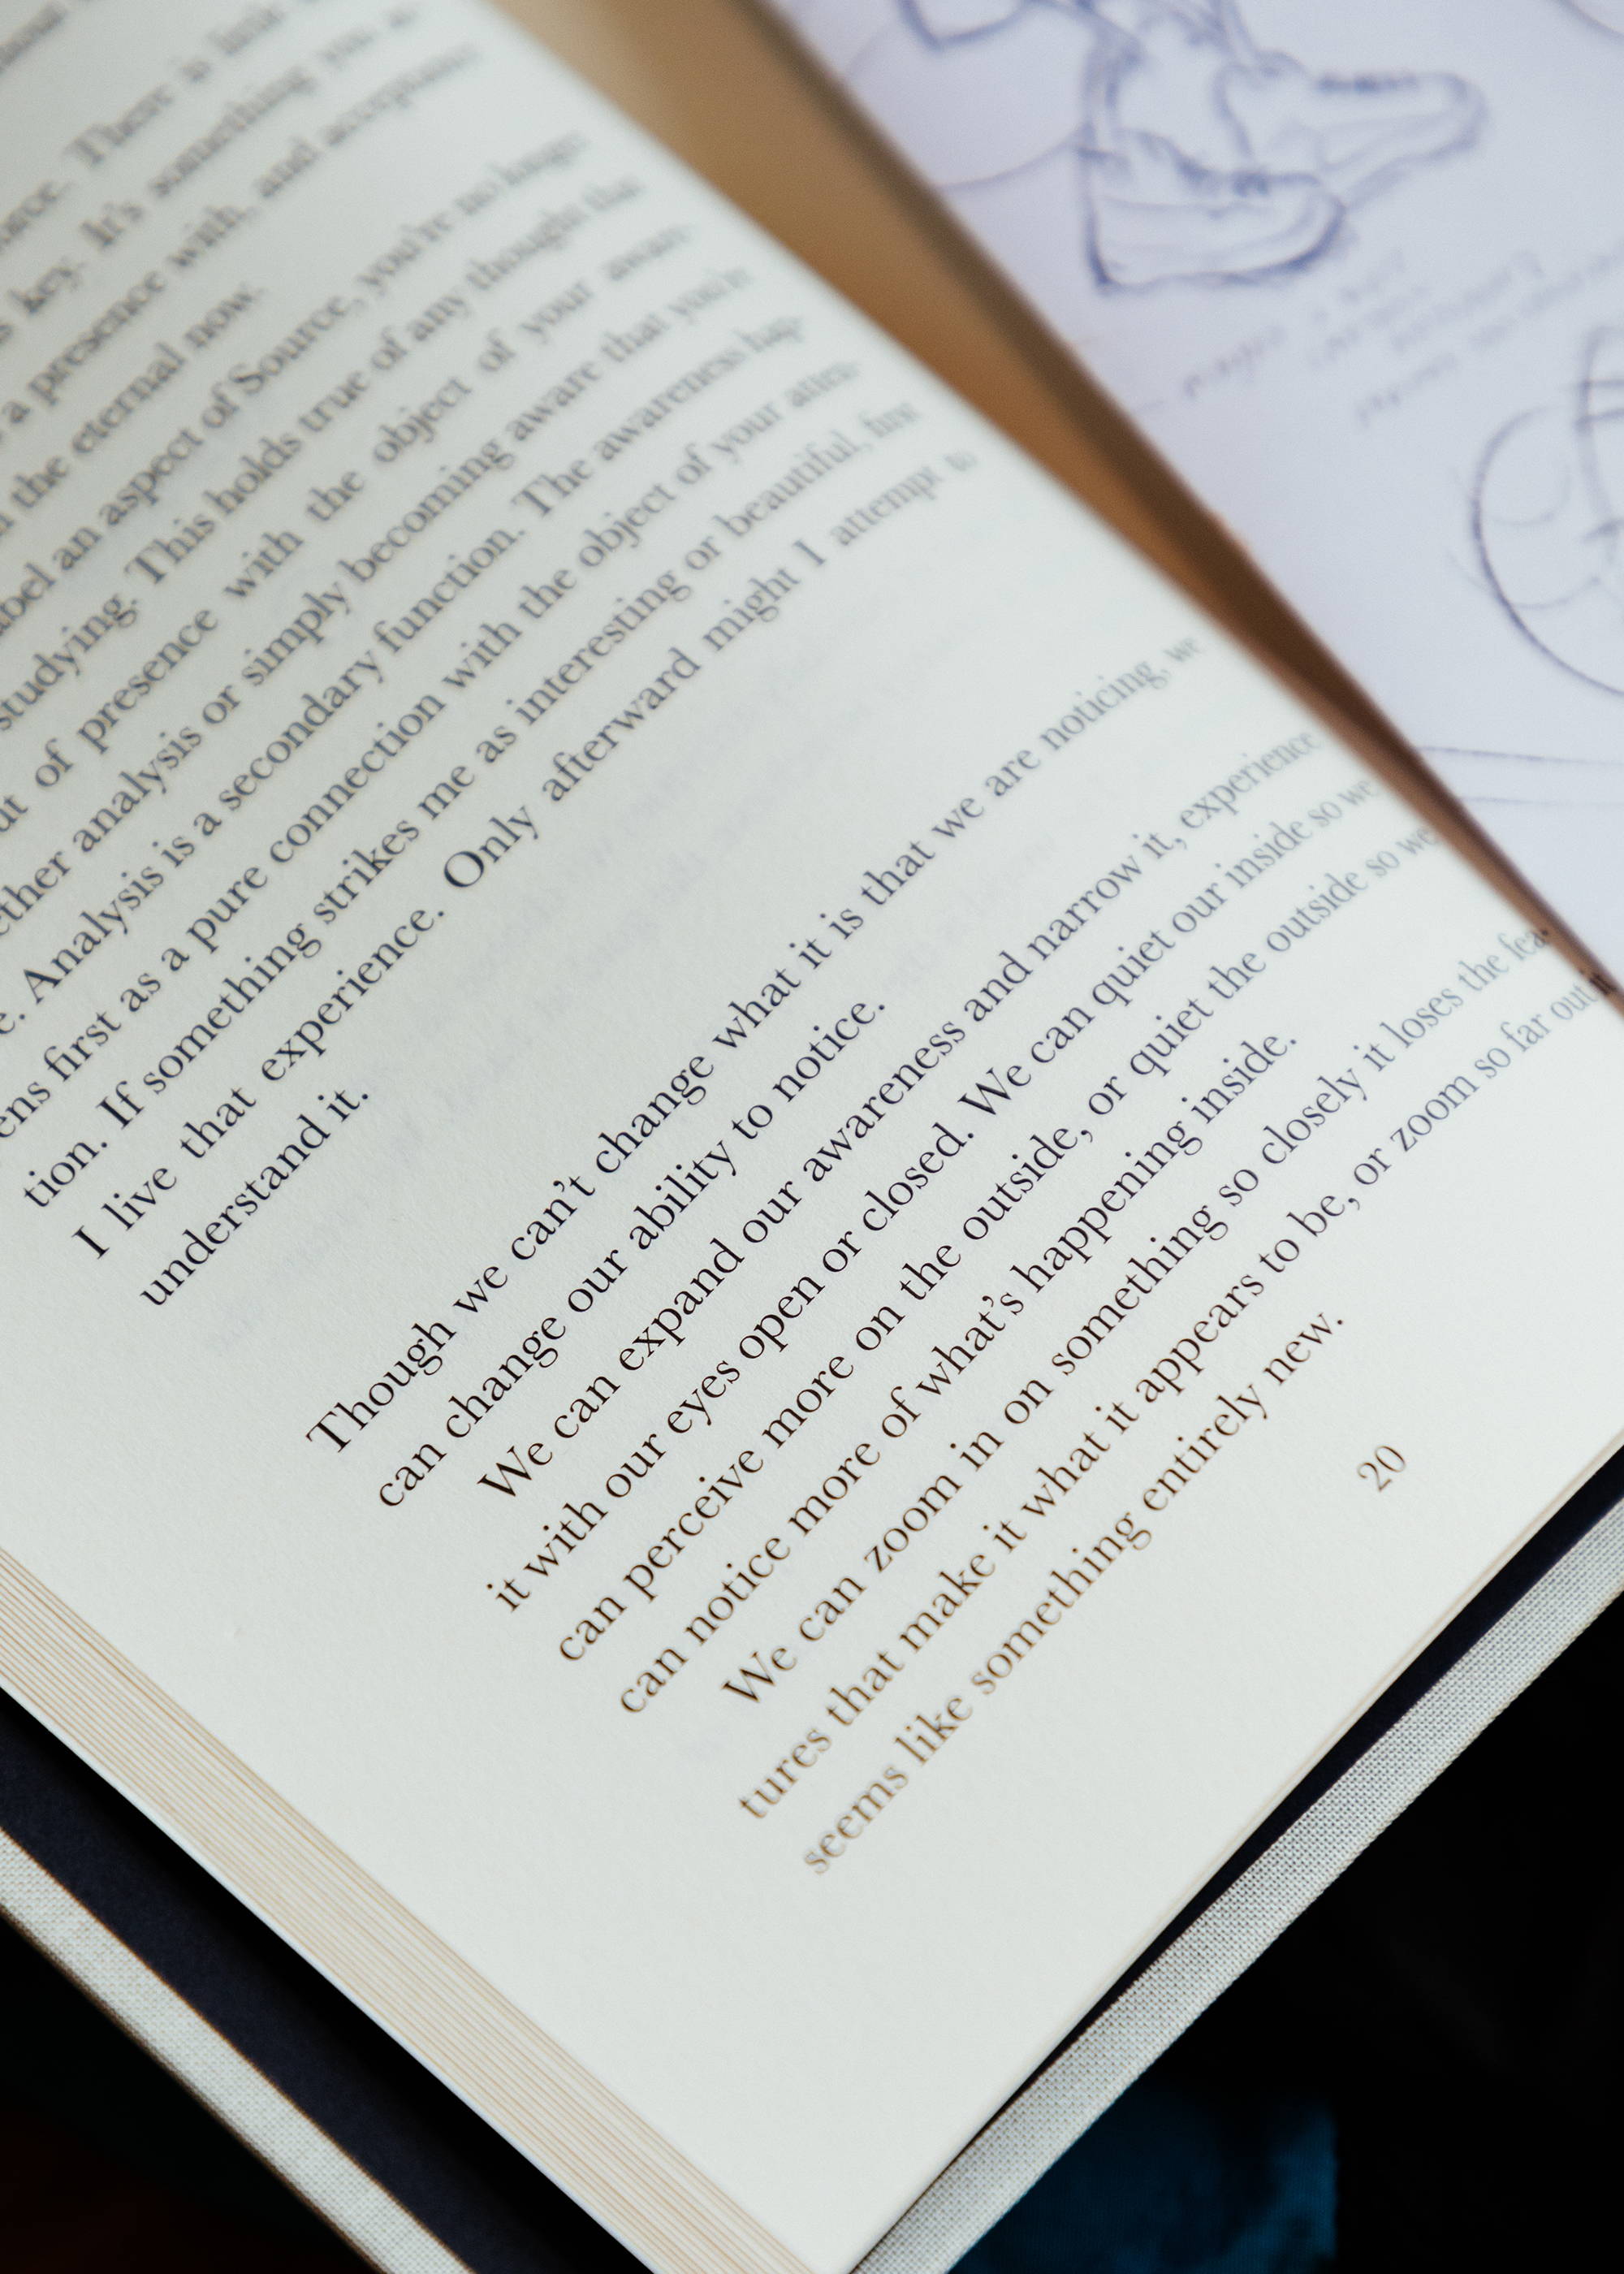 There is
key. It's something you
a presence with, and acceptance
the eternal now.
an aspect of Source, you're no longer
studying. This holds true of any thought that
of presence with the object of your aware-
analysis or simply becoming aware that you're
Analysis is a secondary function. The awareness hap-
first as a pure connection with the object of your atten-
tion. If something strikes me as interesting or beautiful, first
I live that experience. Only afterward might I attempt to
understand it.
Though we can't change what it is that we are noticing, we
can change our ability to notice.
We can expand our awareness and narrow it, experience
it with our eyes open or closed. We can quiet our inside so we
can perceive more on the outside, or quiet the outside so we
can notice more of what's happening inside.
We can zoom in on something so closely it loses the fea-
tures that make it what it appears to be, or zoom so far out
seems like something entirely new.
20